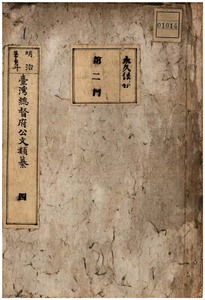 01014
永久保存
第二門
明治
臺灣總督府公文類纂
四